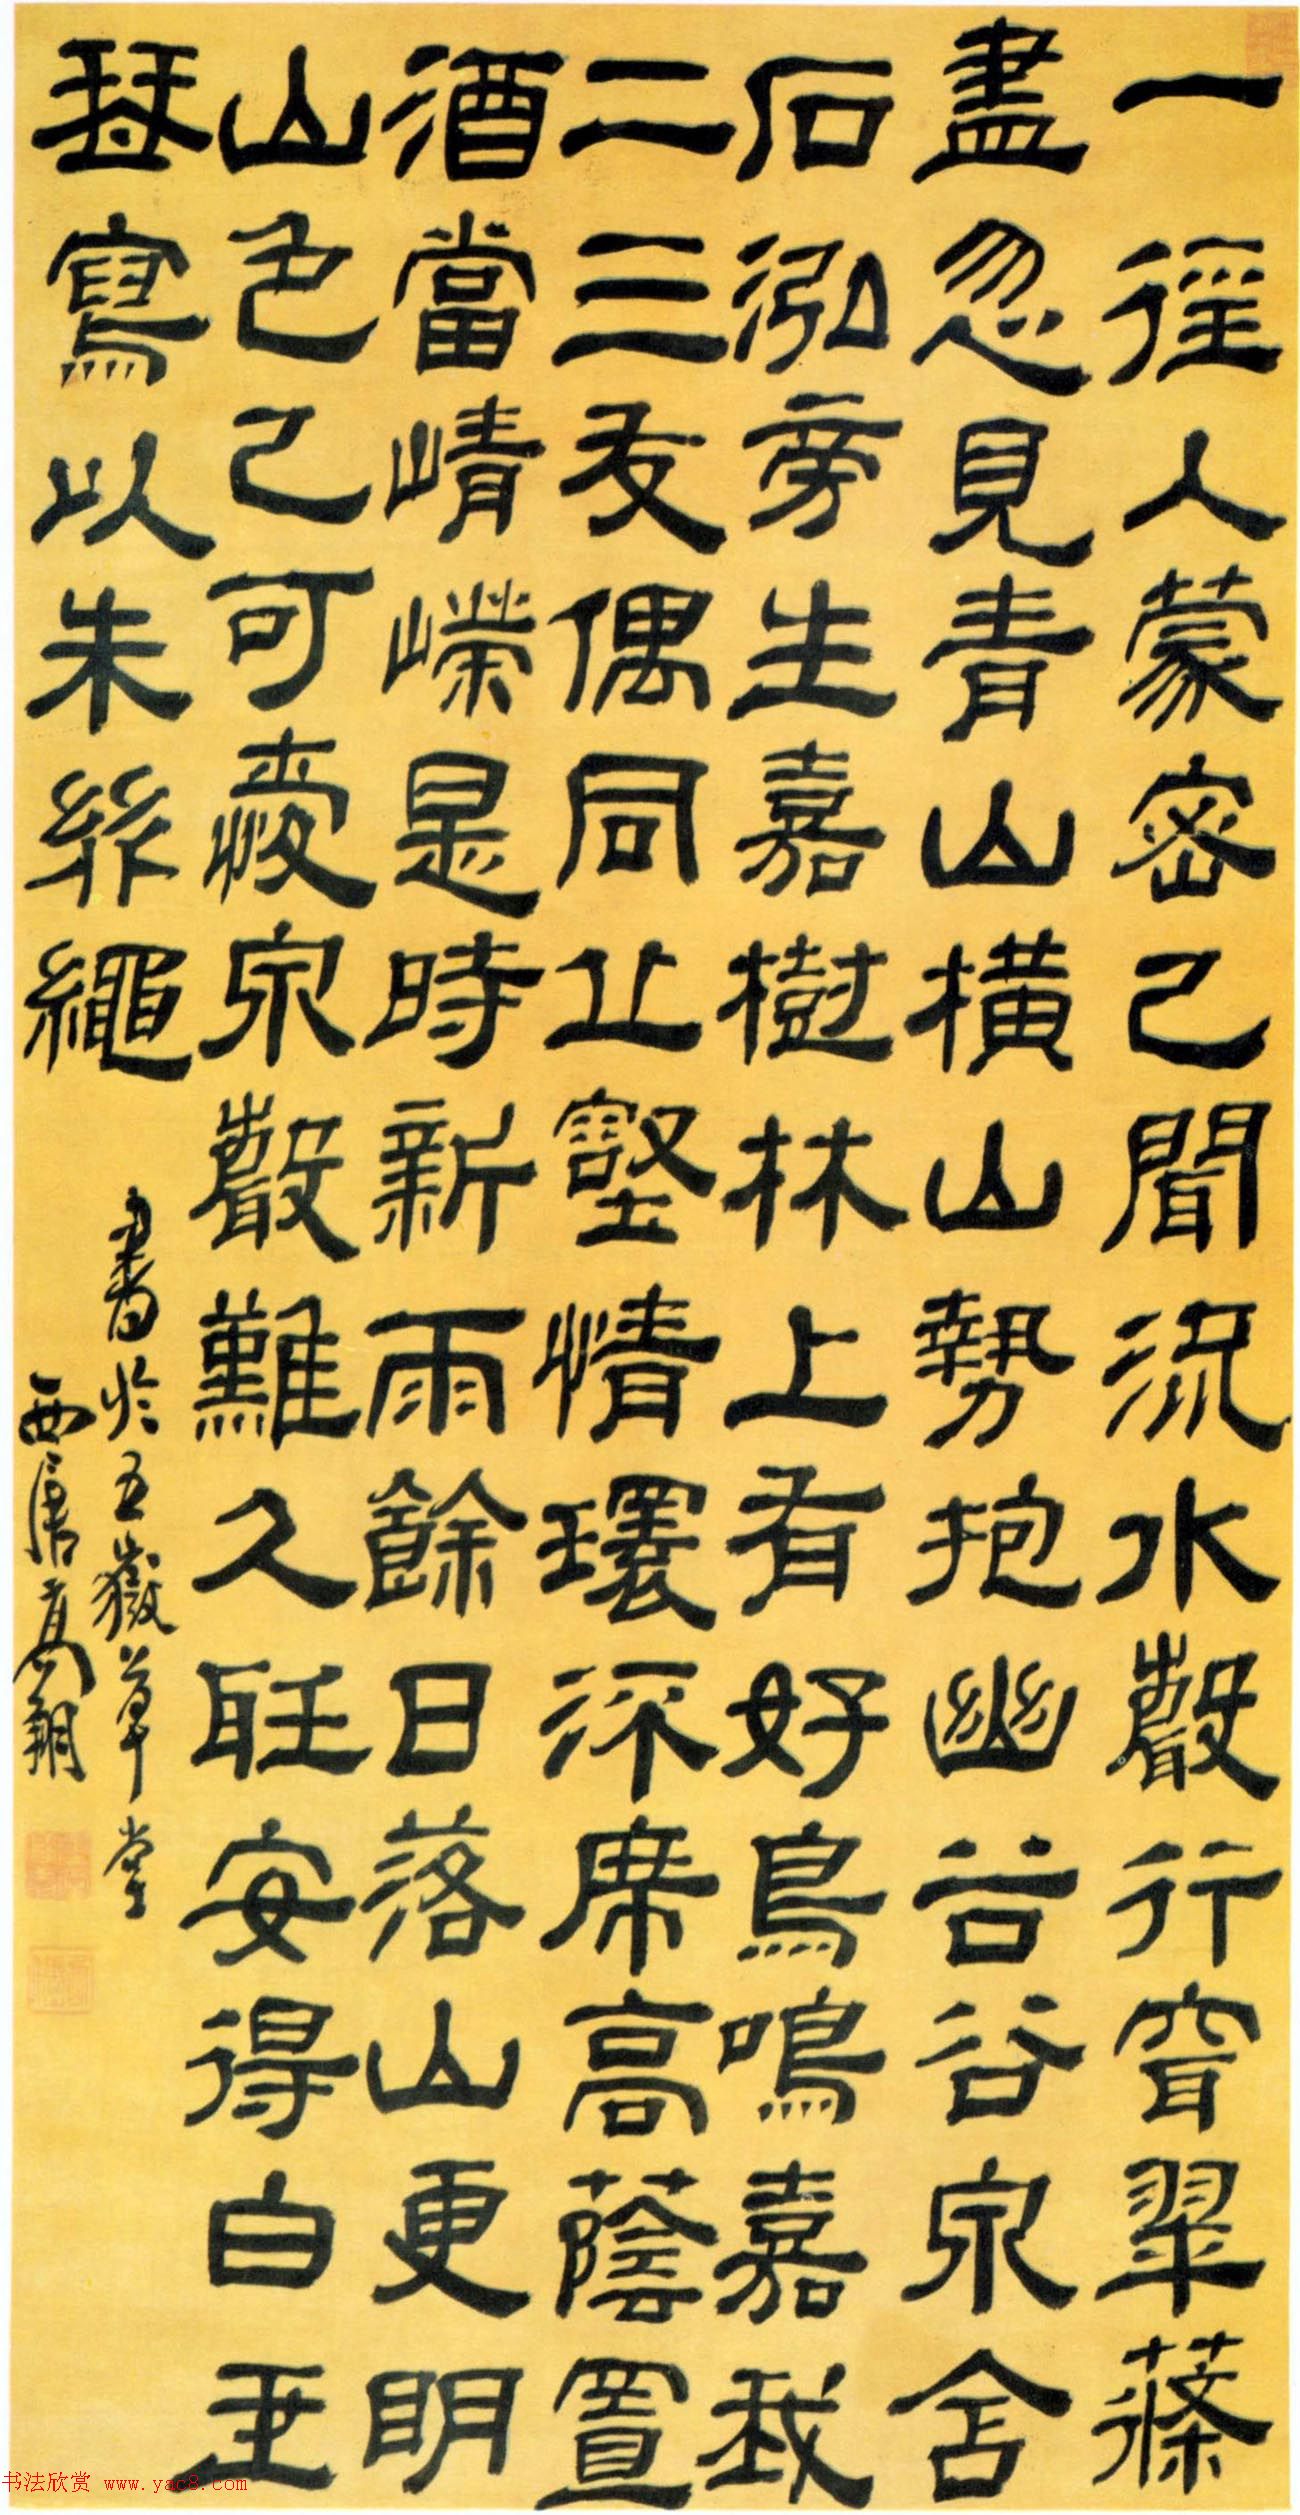 一徑入蒙密已聞流水聲行穿翠篠
盡忽見青山橫山勢抱幽谷谷泉含
石泓旁生嘉樹林上有好鳥鳴嘉我
二三友偶同丘壑情環深席高蔭置
酒當崝嶸是時新雨餘日落山更明
山色已可愛泉聲難久聽安得白玉
琴寫以朱絲繩
書於五嶽草堂
西唐高翔
书法欣赏 www.yac8.com